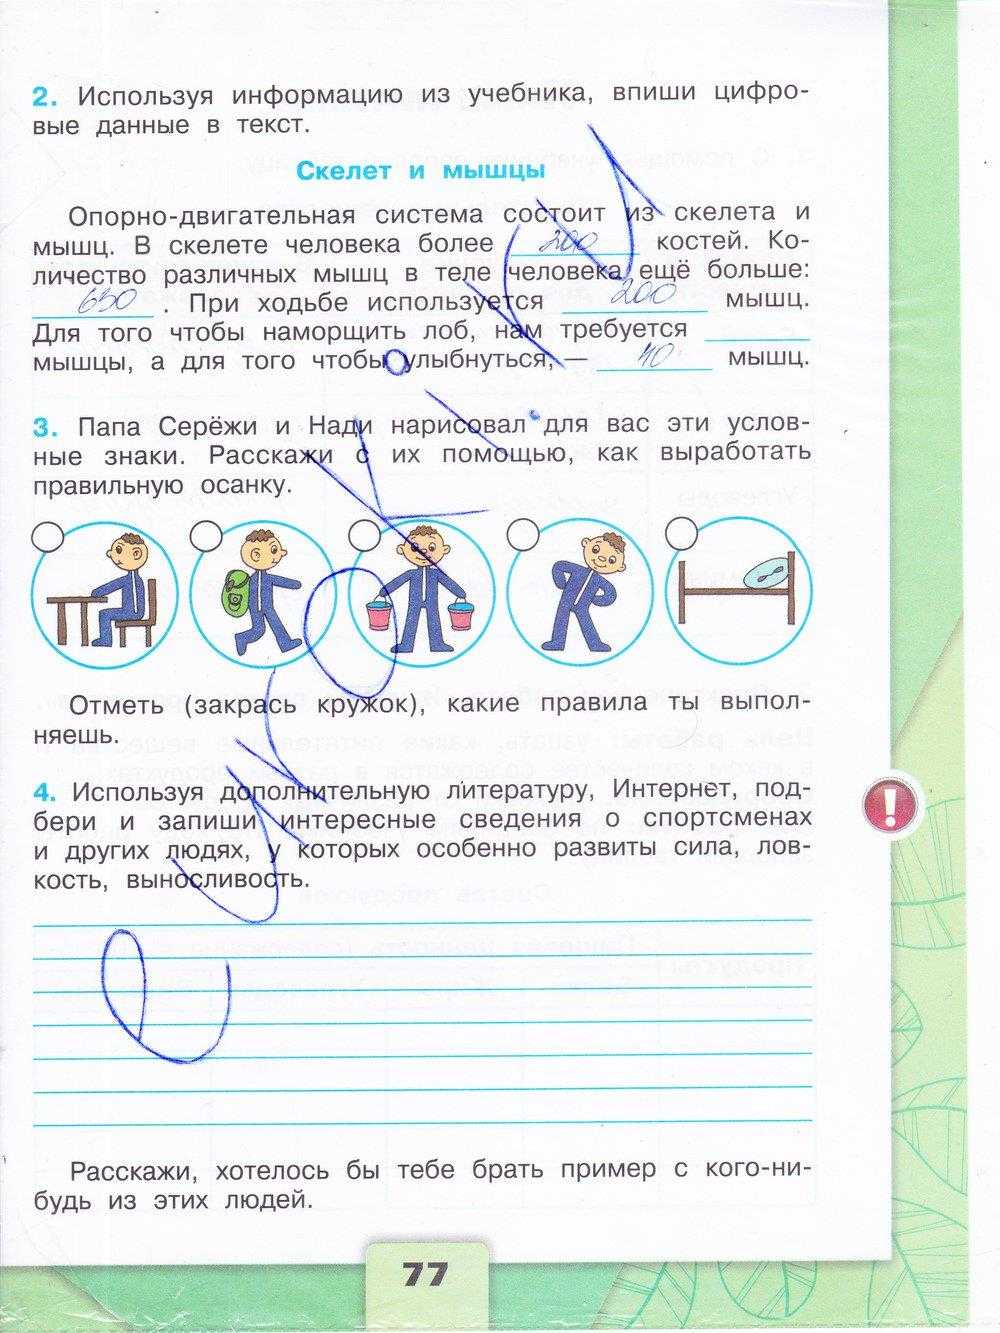 2. Используя информацию из учебника, впиши цифро-
вые данные в текст.
Скелет и мышцы
Опорно-двигательная система состоит из скелета и
мышц. В скелете человека более 200 костей. Ко-
личество различных мышц в теле человека ещё больше:
650. При ходьбе используется 200 мышц.
Для того чтобы наморщить лоб, нам требуется
мышцы, а для того чтобы улыбнуться, — 10 мышц.
3. Папа Серёжи и Нади нарисовал для вас эти услов-
ные знаки. Расскажи с их помощью, как выработать
правильную осанку.
Отметь (закрась кружок), какие правила ты выпол-
няешь.
4. Используя дополнительную литературу, Интернет, под-
бери и запиши интересные сведения о спортсменах
и других людях, у которых особенно развиты сила, лов-
кость, выносливость.
!
Расскажи, хотелось бы тебе брать пример с кого-ни-
будь из этих людей.
77